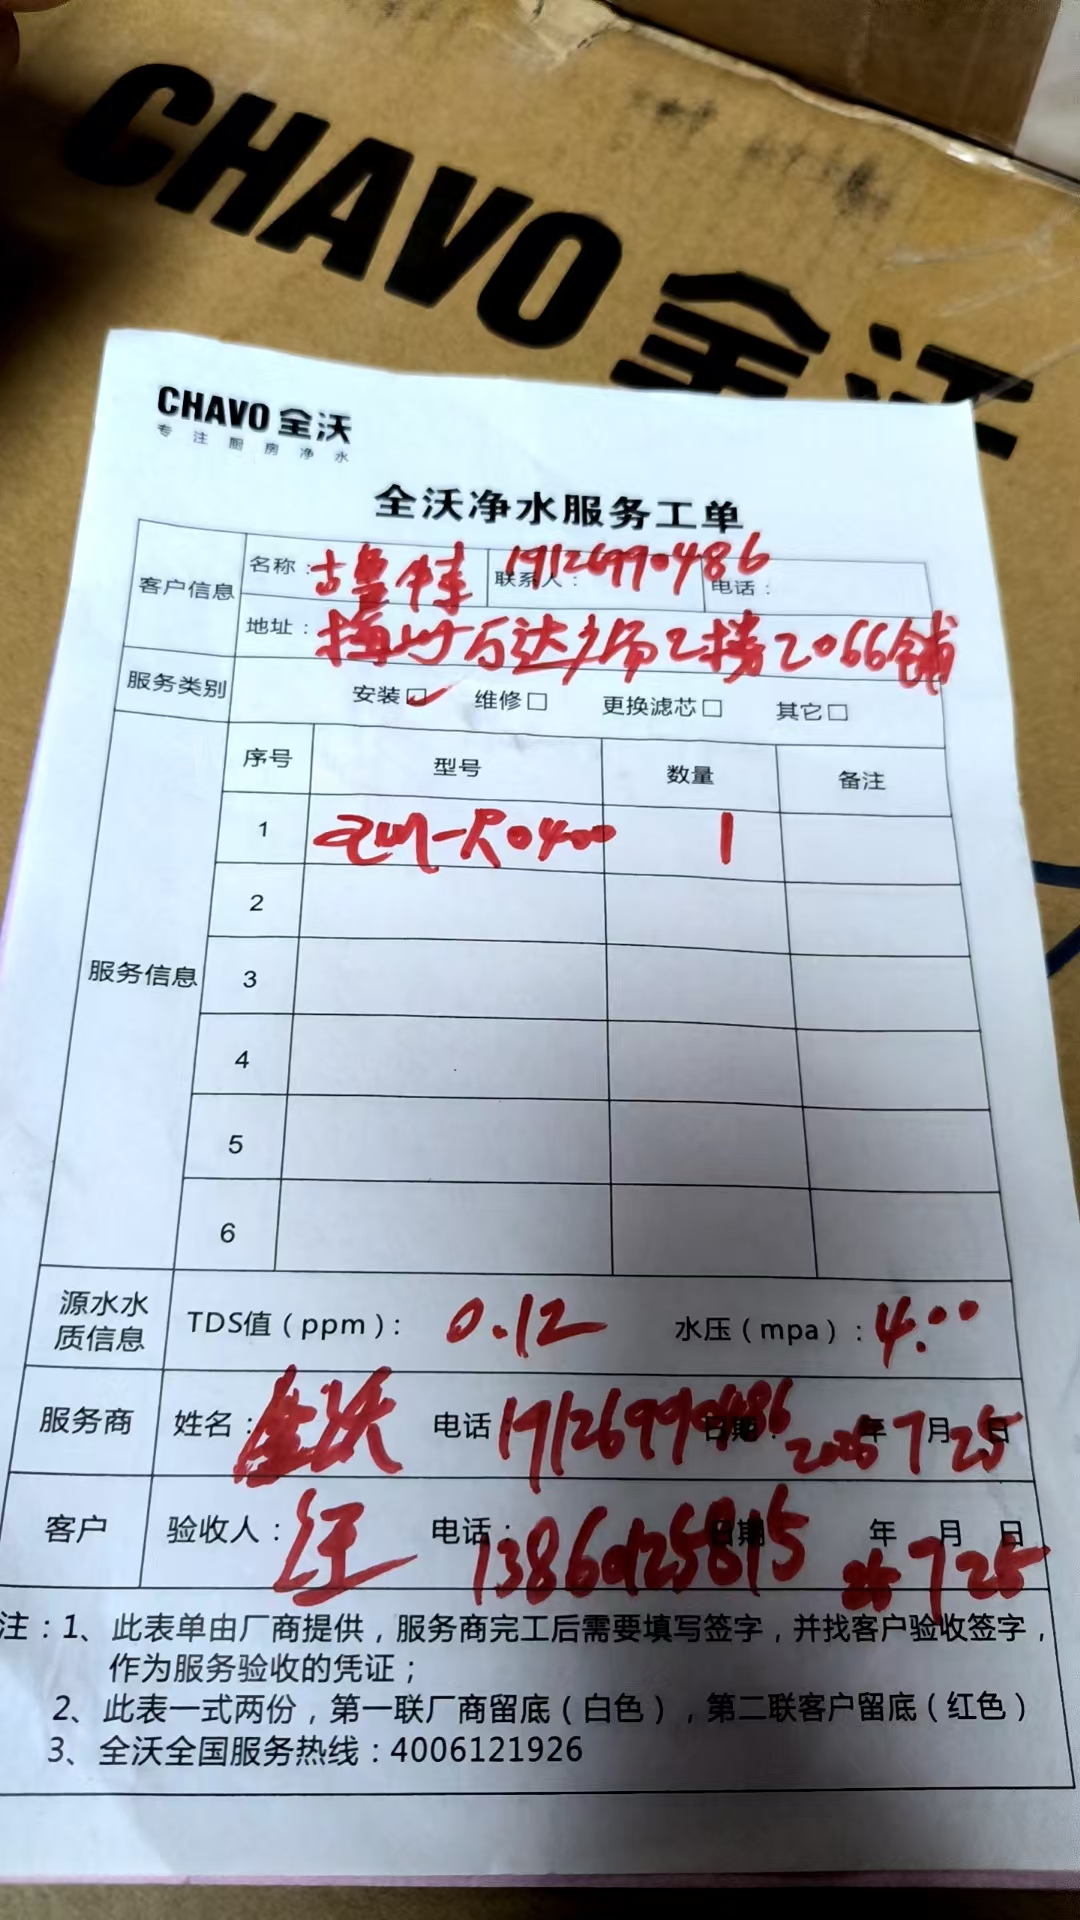 CHAVO 全沃
CHAVO 全沃
专注厨房净水
全沃净水服务工单
客户信息 名称： 联系人： 19126990486 电话：
地址： 梅州万达广场2楼2066铺
服务类别 安装☑ 维修□ 更换滤芯□ 其它□
服务信息 序号 型号 数量 备注
1 1
2
3
4
5
6
源水水质信息 TDS值（ppm）： 0.12 水压（mpa）： 4.00
服务商 姓名： 全沃 电话： 17126990486 日期： 2025 年 7 月 25 日
客户 验收人： 汪 电话： 日期 25 年 7 月 25 日
注：1、此表单由厂商提供，服务商完工后需要填写签字，并找客户验收签字，
作为服务验收的凭证；
2、此表一式两份，第一联厂商留底（白色），第二联客户留底（红色）
3、全沃全国服务热线：4006121926